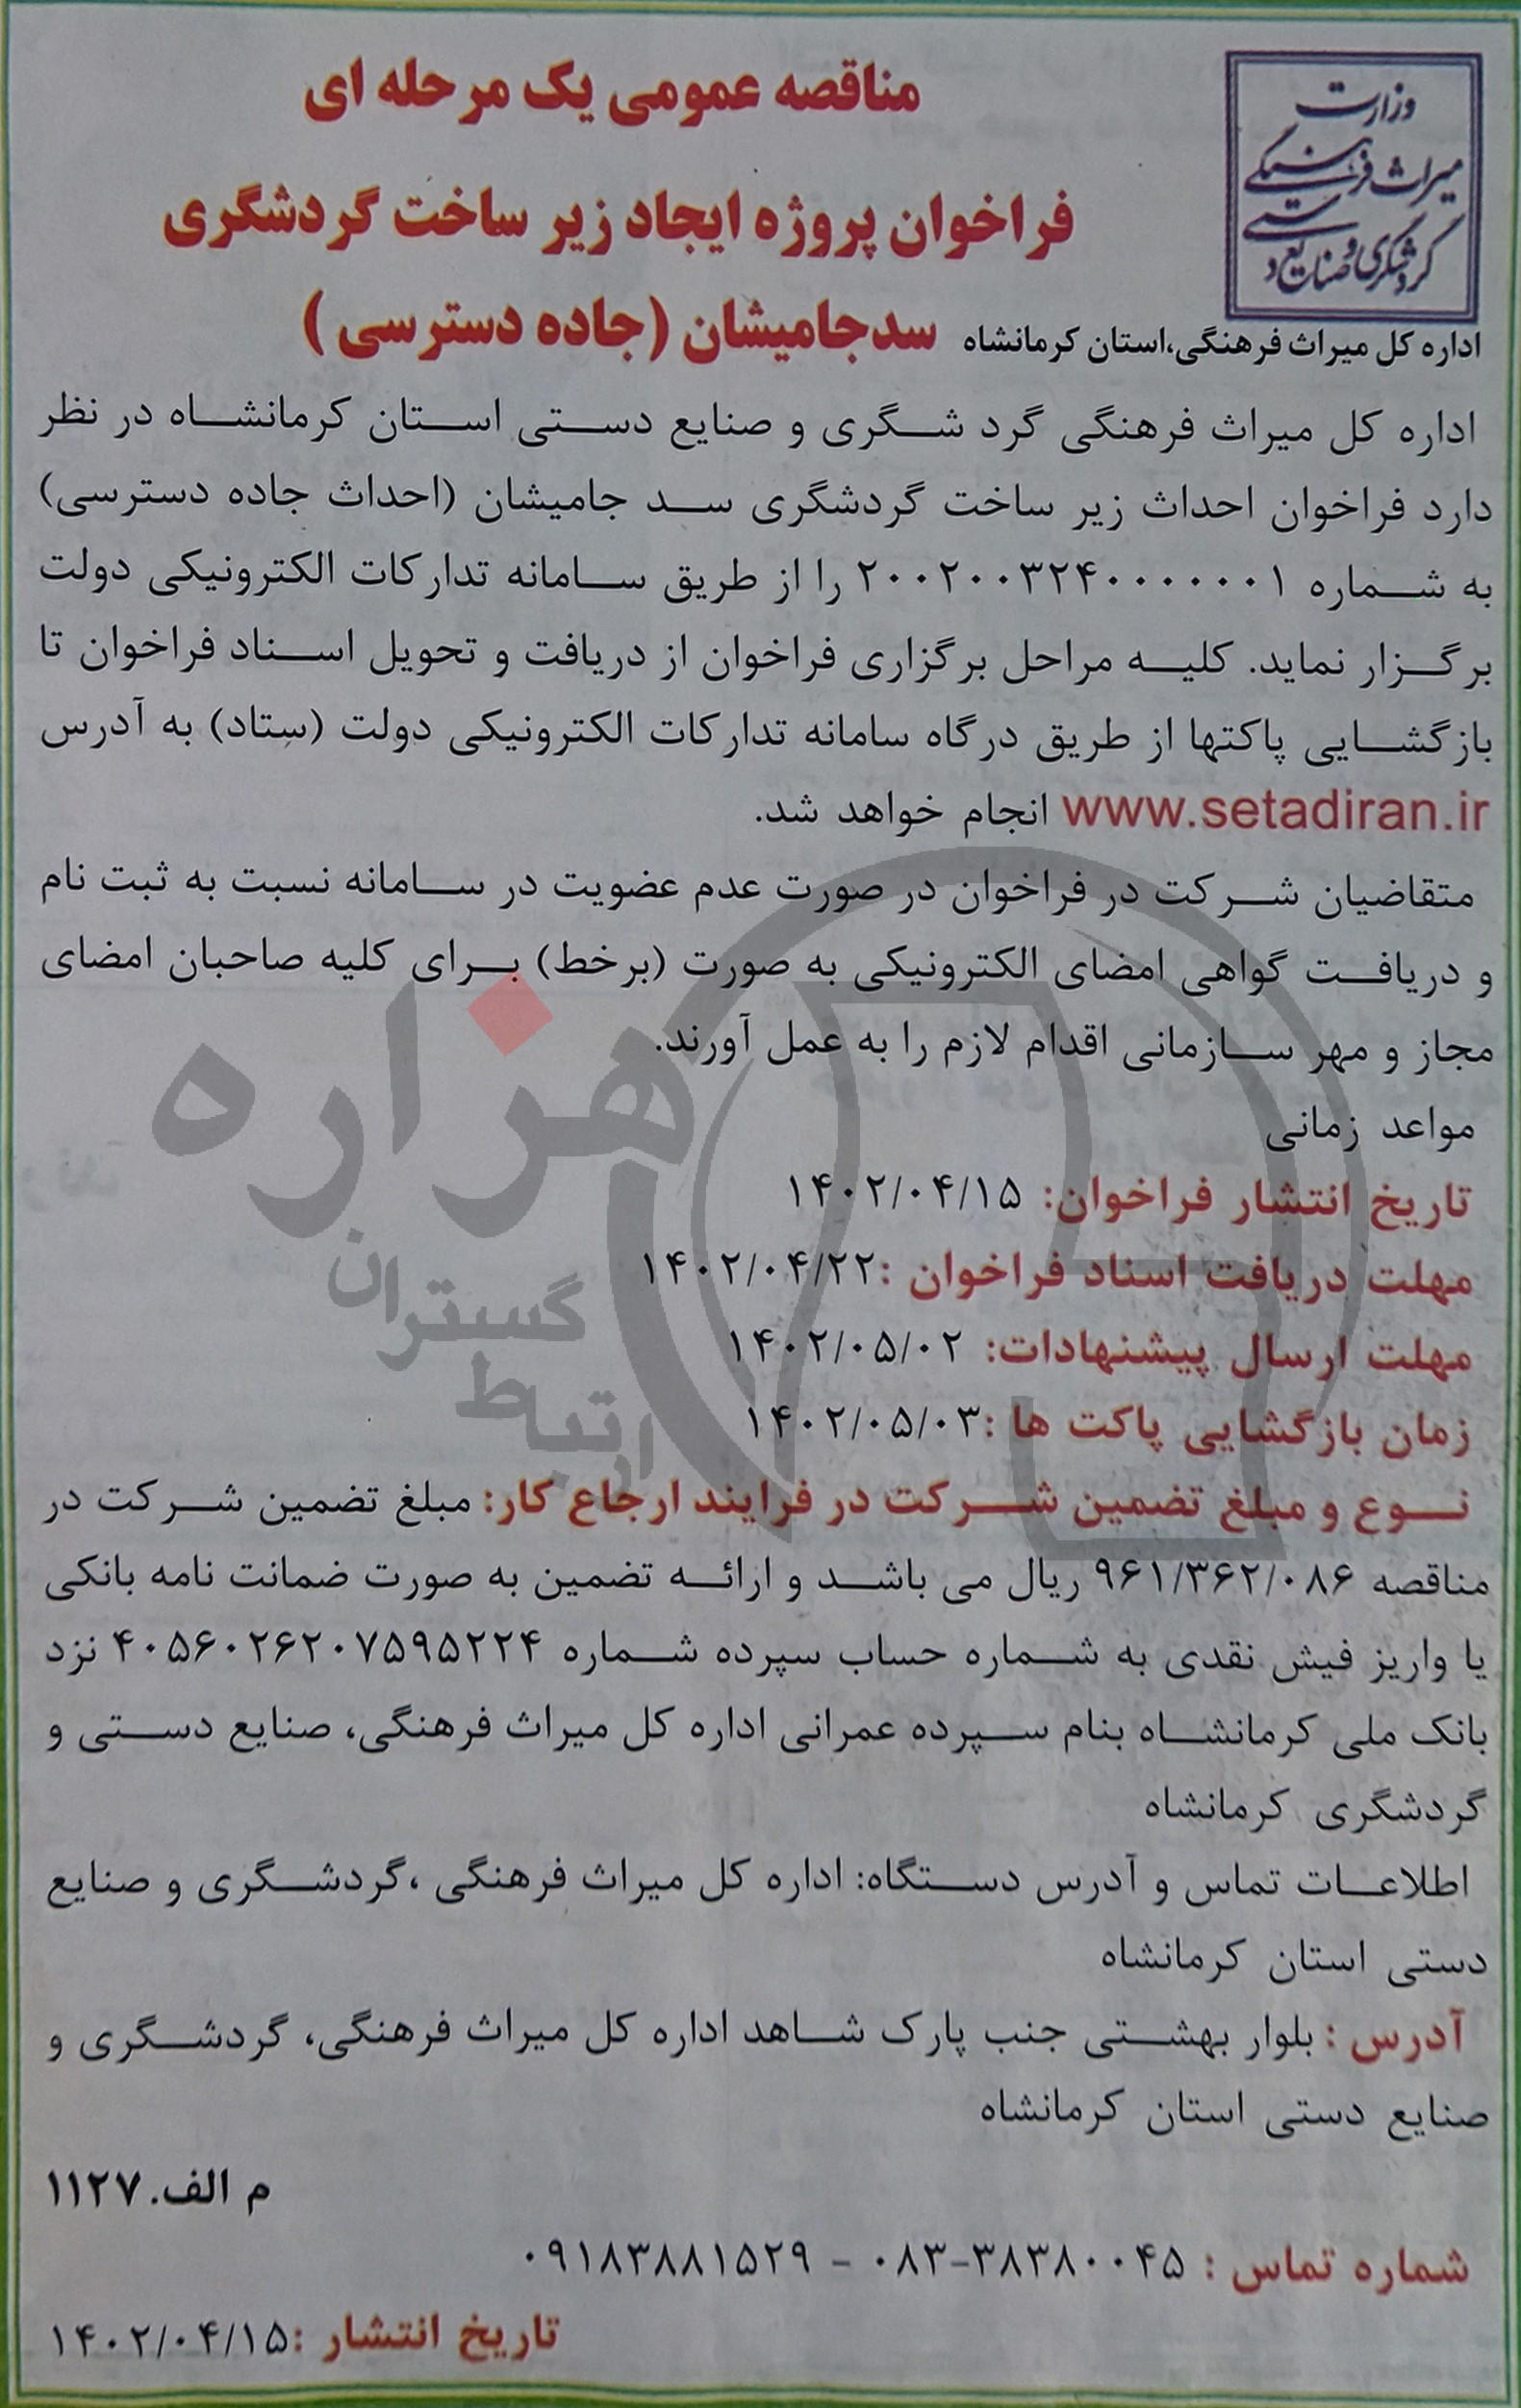 وزارت
میراث فرهنگی
گردشگری و صنایع دستی
مناقصه عمومی یک مرحله ای
فراخوان پروژه ایجاد زیر ساخت گردشگری
سدجامیشان (جاده دسترسی )
اداره کل میراث فرهنگی،استان کرمانشاه
اداره کل میراث فرهنگی گرد شگری و صنایع دستی استان کرمانشاه در نظر
دارد فراخوان احداث زیر ساخت گردشگری سد جامیشان (احداث جاده دسترسی)
به شماره ۲۰۰۲۰۰۳۲۴۰۰۰۰۰۰۱ را از طریق سامانه تدارکات الکترونیکی دولت
برگزار نماید. کلیه مراحل برگزاری فراخوان از دریافت و تحویل اسناد فراخوان تا
بازگشایی پاکتها از طریق درگاه سامانه تدارکات الکترونیکی دولت (ستاد) به آدرس
www.setadiran.ir انجام خواهد شد.
متقاضیان شرکت در فراخوان در صورت عدم عضویت در سامانه نسبت به ثبت نام
و دریافت گواهی امضای الکترونیکی به صورت (برخط) برای کلیه صاحبان امضای
مجاز و مهر سازمانی اقدام لازم را به عمل آورند.
مواعد زمانی
تاریخ انتشار فراخوان: ۱۴۰۲/۰۴/۱۵
مهلت دریافت اسناد فراخوان :۱۴۰۲/۰۴/۲۲
مهلت ارسال پیشنهادات: ۱۴۰۲/۰۵/۰۲
زمان بازگشایی پاکت ها :۱۴۰۲/۰۵/۰۳
نوع و مبلغ تضمین شرکت در فرایند ارجاع کار: مبلغ تضمین شرکت در
مناقصه ۹۶۱/۳۶۲/۰۸۶ ریال می باشد و ارائه تضمین به صورت ضمانت نامه بانکی
یا واریز فیش نقدی به شماره حساب سپرده شماره ۴۰۵۶۰۲۶۲۰۷۵۹۵۲۲۴ نزد
بانک ملی کرمانشاه بنام سپرده عمرانی اداره کل میراث فرهنگی، صنایع دستی و
گردشگری کرمانشاه
اطلاعات تماس و آدرس دستگاه: اداره کل میراث فرهنگی ،گردشگری و صنایع
دستی استان کرمانشاه
آدرس : بلوار بهشتی جنب پارک شاهد اداره کل میراث فرهنگی، گردشگری و
صنایع دستی استان کرمانشاه
م الف. ۱۱۲۷
شماره تماس : ۰۸۳-۳۸۳۸۰۰۴۵ - ۰۹۱۸۳۸۸۱۵۲۹
تاریخ انتشار :۱۴۰۲/۰۴/۱۵
هزاره
گستران
ارتباط